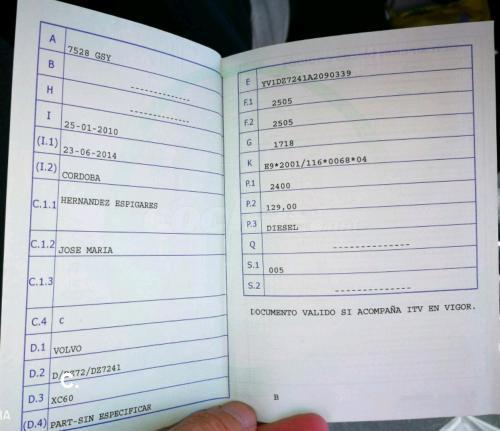 A 7528 GSY
B -------------
H -------------
I 25-01-2010
(I.1) 23-06-2014
(I.2) CORDOBA
C.1.1 HERNANDEZ ESPIGARES
C.1.2 JOSE MARIA
C.1.3
C.4 C
D.1 VOLVO
D.2 D/DZ72/DZ7241
D.3 XC60
(D.4) PART-SIN ESPECIFICAR
E YV1DZ7241A2090339
F.1 2505
F.2 2505
G 1718
K E9*2001/116*0068*04
P.1 2400
P.2 129,00
P.3 DIESEL
Q --------------
S.1 005
S.2 --------------
DOCUMENTO VALIDO SI ACOMPAÑA ITV EN VIGOR.
B